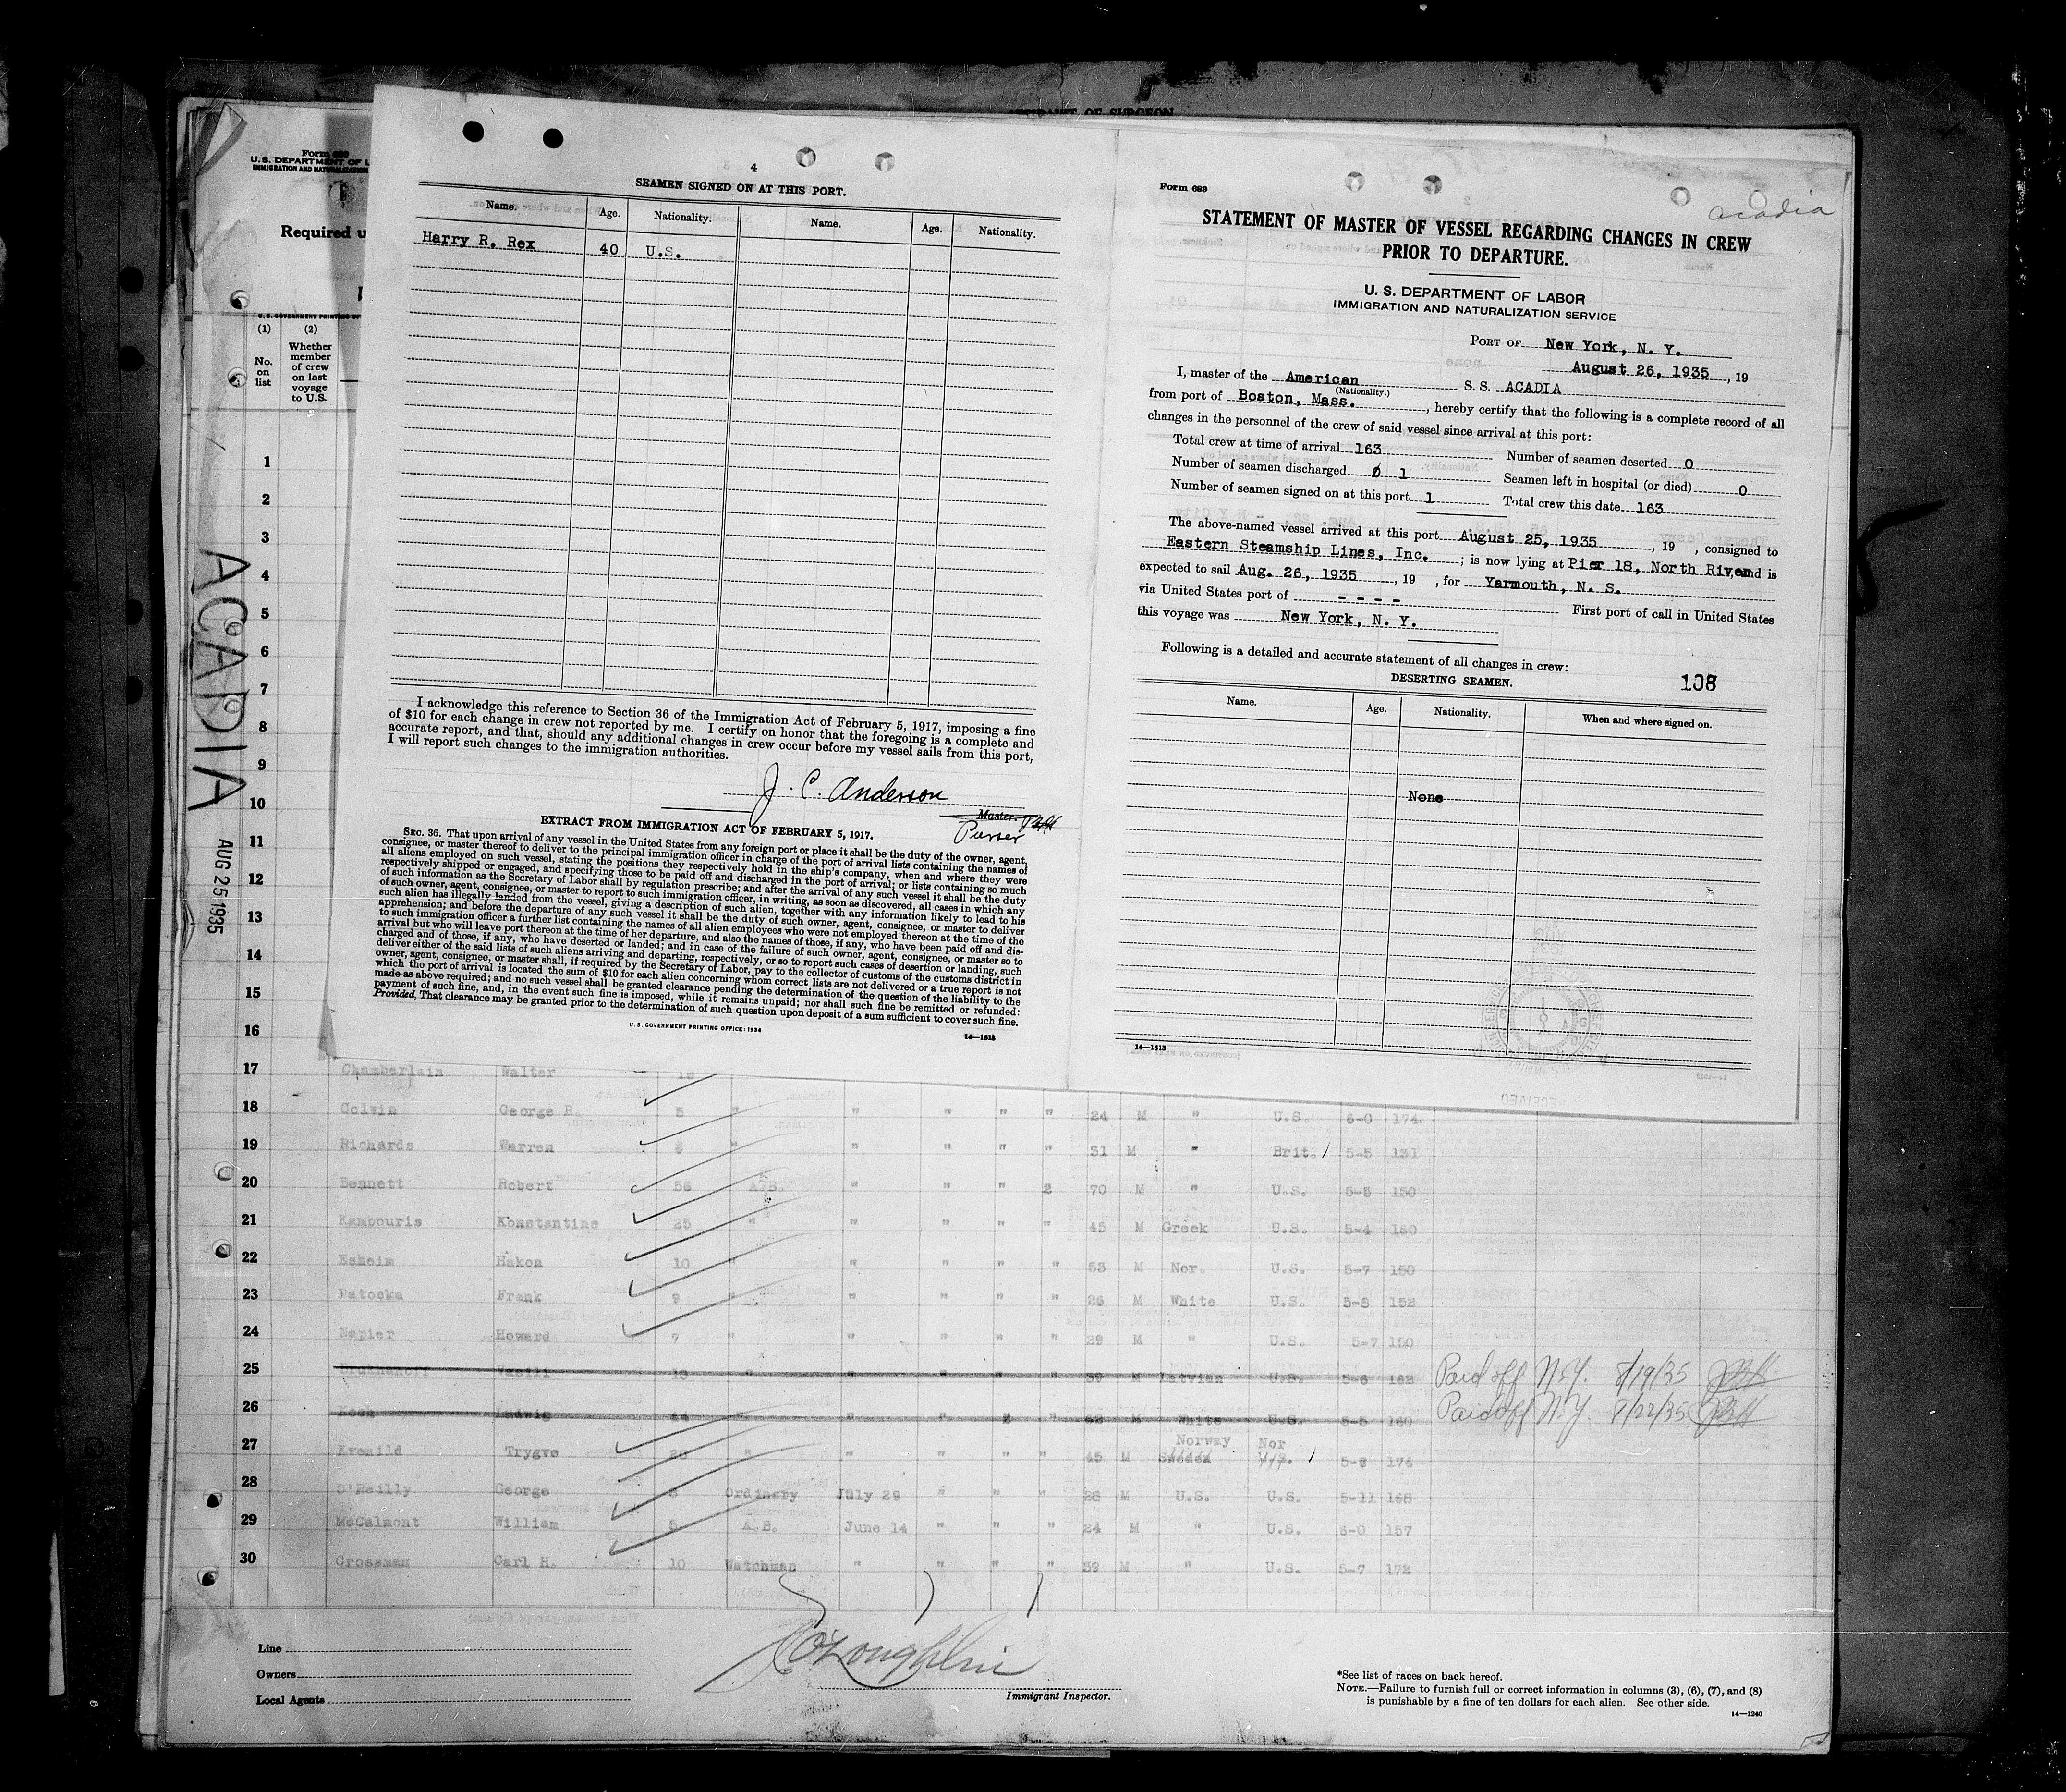 AFFIDAVIT OF SURGEON
Form 689
U. S. DEPARTMENT OF L
IMMIGRATION AND NATURALIZATION
Required u
(1) (2)
No. on list
Whether member of crew on last voyage to U.S.
ACADIA
AUG 25 1935
4
SEAMEN SIGNED ON AT THIS PORT.
Name. Age. Nationality. Name. Age. Nationality.
Harry R. Rex 40 U.S.
I acknowledge this reference to Section 36 of the Immigration Act of February 5, 1917, imposing a fine
of $10 for each change in crew not reported by me. I certify on honor that the foregoing is a complete and
accurate report, and that, should any additional changes in crew occur before my vessel sails from this port,
I will report such changes to the immigration authorities.
J. C. Anderson
Master.
Purser
EXTRACT FROM IMMIGRATION ACT OF FEBRUARY 5, 1917.
SEC. 36. That upon arrival of any vessel in the United States from any foreign port or place it shall be the duty of the owner, agent,
consignee, or master thereof to deliver to the principal immigration officer in charge of the port of arrival lists containing the names of
all aliens employed on such vessel, stating the positions they respectively hold in the ship's company, when and where they were
respectively shipped or engaged, and specifying those to be paid off and discharged in the port of arrival; or lists containing so much
of such information as the Secretary of Labor shall by regulation prescribe; and after the arrival of any such vessel it shall be the duty
of such owner, agent, consignee, or master to report to such immigration officer, in writing, as soon as discovered, all cases in which any
such alien has illegally landed from the vessel, giving a description of such alien, together with any information likely to lead to his
apprehension; and before the departure of any such vessel it shall be the duty of such owner, agent, consignee, or master to deliver
to such immigration officer a further list containing the names of all alien employees who were not employed thereon at the time of the
arrival but who will leave port thereon at the time of her departure, and also the names of those, if any, who have been paid off and dis-
charged and of those, if any, who have deserted or landed; and in case of the failure of such owner, agent, consignee, or master so to
deliver either of the said lists of such aliens arriving and departing, respectively, or so to report such cases of desertion or landing, such
owner, agent, consignee, or master shall, if required by the Secretary of Labor, pay to the collector of customs of the customs district in
which the port of arrival is located the sum of $10 for each alien concerning whom correct lists are not delivered or a true report is not
made as above required; and no such vessel shall be granted clearance pending the determination of the question of the liability to the
payment of such fine, and, in the event such fine is imposed, while it remains unpaid; nor shall such fine be remitted or refunded:
Provided, That clearance may be granted prior to the determination of such question upon deposit of a sum sufficient to cover such fine.
U. S. GOVERNMENT PRINTING OFFICE: 1934
14—1613
Form 689
acadia
STATEMENT OF MASTER OF VESSEL REGARDING CHANGES IN CREW
PRIOR TO DEPARTURE.
U. S. DEPARTMENT OF LABOR
IMMIGRATION AND NATURALIZATION SERVICE
PORT OF New York, N. Y.
August 26, 1935, 19
I, master of the American S. S. ACADIA
(Nationality.)
from port of Boston, Mass., hereby certify that the following is a complete record of all
changes in the personnel of the crew of said vessel since arrival at this port:
Total crew at time of arrival 163 Number of seamen deserted 0
Number of seamen discharged 0 1 Seamen left in hospital (or died) 0
Number of seamen signed on at this port 1 Total crew this date 163
The above-named vessel arrived at this port August 25, 1935, 19 , consigned to
Eastern Steamship Lines, Inc. ; is now lying at Pier 18, North River, and is
expected to sail Aug. 26, 1935, 19 , for Yarmouth, N. S.
via United States port of - - - - First port of call in United States
this voyage was New York, N. Y.
Following is a detailed and accurate statement of all changes in crew:
108
DESERTING SEAMEN.
Name. Age. Nationality. When and where signed on.
None
14—1613
1
2
3
4
5
6
7
8
9
10
11
12
13
14
15
16
17 Chamberlain Walter
18 Colvin George R. 5 " " " " " 24 M " U.S. 6-0 174
19 Richards Warren " " " " " 31 M " Brit. 5-5 131
20 Bennett Robert 56 A.B. " " " 2 70 M " U.S. 5-5 150
21 Kambouris Konstantine 25 " " " " " 45 M Greek U.S. 5-4 180
22 Esheim Hakon 10 " " " " " 53 M Nor. U.S. 5-7 150
23 Patocka Frank 9 " " " " " 26 M White U.S. 5-8 152
24 Napier Howard 7 " " " " " 29 M " U.S. 5-7 150
25 Vasili 10 " " " " " 39 M Latvian U.S. 5-6 162 Paid off N.Y. 8/19/35
26 Koch Ludwig 44 " " " 2 " 42 M White U.S. 5-5 160 Paid off N.Y. 8/22/35
27 Kvenild Trygve 20 " " " " " 45 M Norway Sweden Nor U.S. 174
28 O'Reilly George 5 Ordinary July 29 " " " 28 M U.S. U.S. 5-11 168
29 McCalmont William 5 A.B. June 14 " " " 24 M " U.S. 6-0 157
30 Grossman Carl H. 10 Watchman " " " " 39 M " U.S. 5-7 172
Line
Owners
Local Agents
O'Loughlin
Immigrant Inspector.
*See list of races on back hereof.
NOTE.—Failure to furnish full or correct information in columns (3), (6), (7), and (8)
is punishable by a fine of ten dollars for each alien. See other side.
14—1240